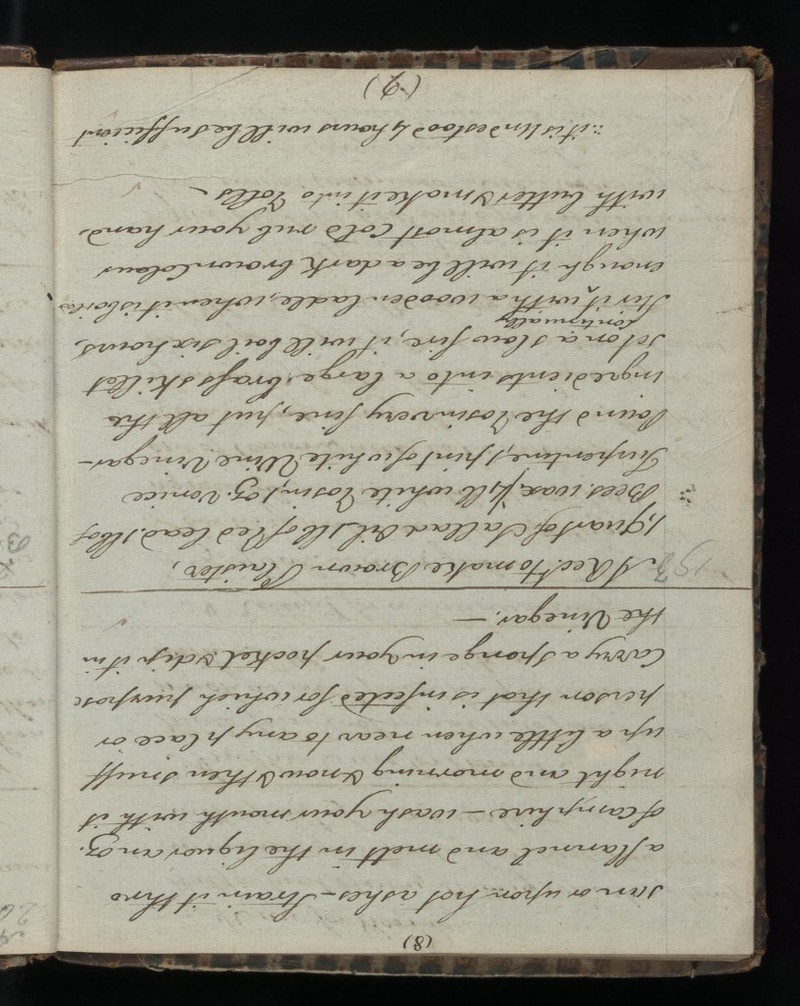 (8)
sun or upon hot ashes – strain it thro
a flannel and melt in the liquor an oz.
of Camphire – wash your mouth with it
night and morning & now & then snuff
up a little when near to any place or
person that is infected for which purpose
Carry a sponge in your pocket & dip it in
the Vinegar. –
193 A Rect. to make Brown Plaister,
1, Quart of Sallad Oil 1 lb of Red Lead, 1 lb of
Bees. wax, ½ lb white Rosin, 1 oz. Venice
Turpentine, 1 pint of white Wine Vinegar –
Pound the Rosin very fine, put all the
ingredients into a large brass skillet
set on a slow fire, it will boil six hours,
continually
stir it ^ with a wooden ladle, when it is boiled
enough it will be a dark brown Colour
when it is almost Cold rub your hands
with butter & make it into Rolls –
∴ it is Understood 4 hours will be sufficient
(9)